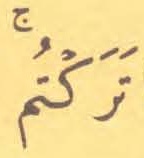 تَرَكْتُمْ ۚ